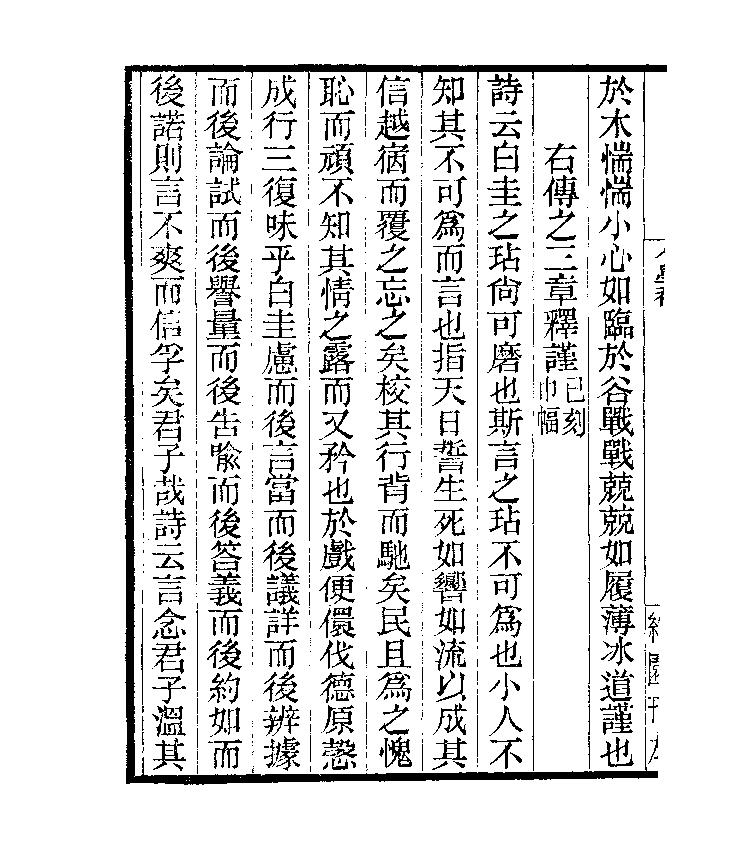 於木惴惴小心如臨於谷戰戰兢兢如履薄冰道謹也
右傳之三章釋謹已刻巾幅
詩云白圭之玷尙可磨也斯言之玷不可爲也小人不
知其不可爲而言也指天日誓生死如響如流以成其
信越宿而覆之忘之矣校其行背而馳矣民且爲之愧
恥而頑不知其情之露而又矜也於戲便儇伐德原愨
成行三復味乎白圭慮而後言當而後議詳而後辨據
而後論試而後譽量而後告喩而後答義而後約如而
後諾則言不爽而信孚矣君子哉詩云言念君子溫其